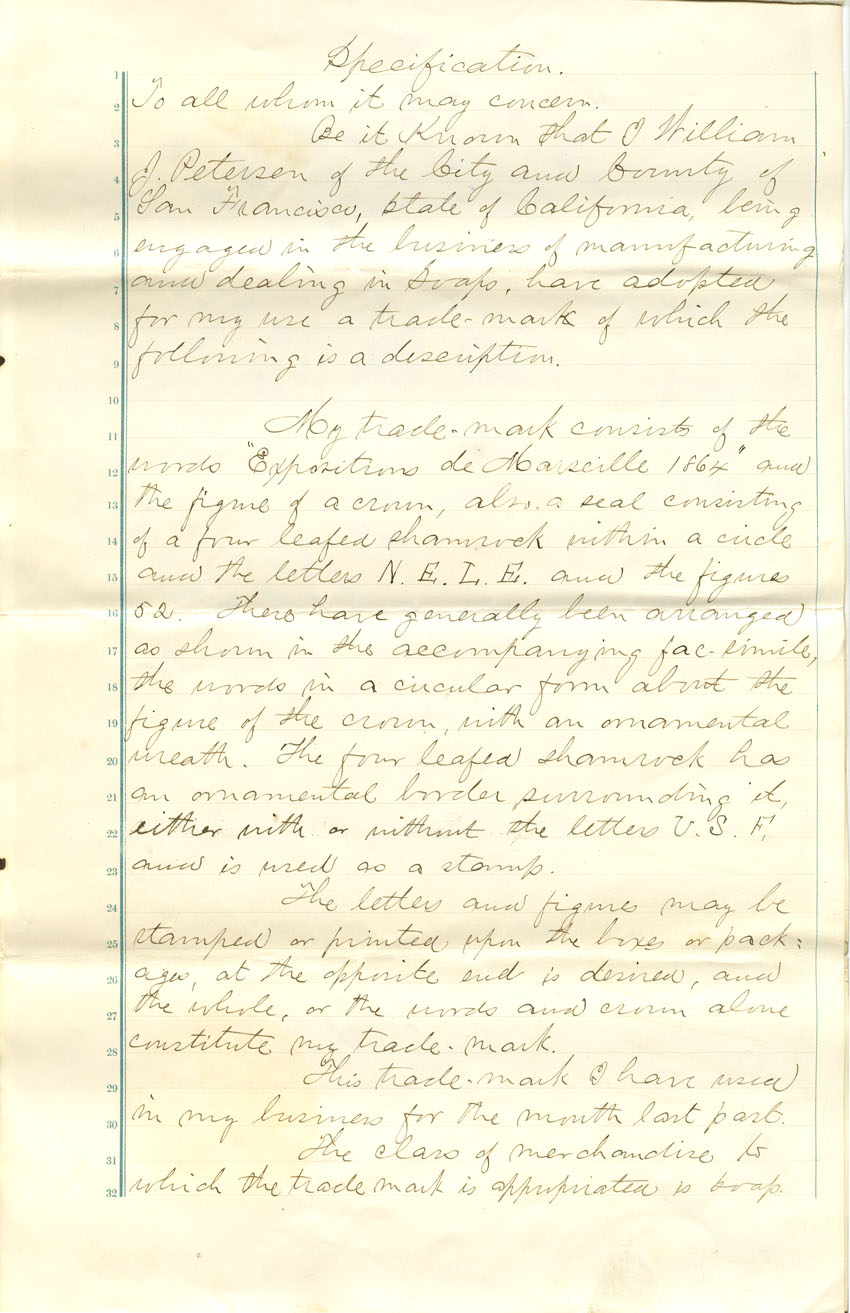 Specification.
1
2 To all whom it may concern.
3 Be it Known that I William
4 J. Petersen of the City and County of
5 San Francisco, State of California, being
6 engaged in the business of manufacturing
7 and dealing in Soaps, have adopted
8 for my use a trade-mark of which the
9 following is a description.
10
11 My trade-mark consists of the
12 words "Expositions de Marseille 1864" and
13 the figure of a crown, also a seal consisting
14 of a four leafed shamrock within a circle
15 and the letters N. E. L. E. and the figures
16 52. These have generally been arranged
17 as shown in the accompanying fac-simile,
18 the words in a circular form about the
19 figure of the crown, with an ornamental
20 wreath. The four leafed shamrock has
21 an ornamental border surrounding it,
22 either with or without the letters V. S. F.
23 and is used as a stamp.
24 The letters and figures may be
25 stamped or printed upon the boxes or pack=
26 ages, at the opposite end is desired, and
27 the whole, or the words and crown alone
28 constitute my trade-mark.
29 This trade-mark I have used
30 in my business for the month last past.
31 The class of merchandise to
32 which the trade mark is appropriated is soap.